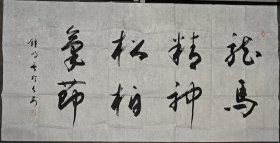 龍馬
精神
松柏
氣節